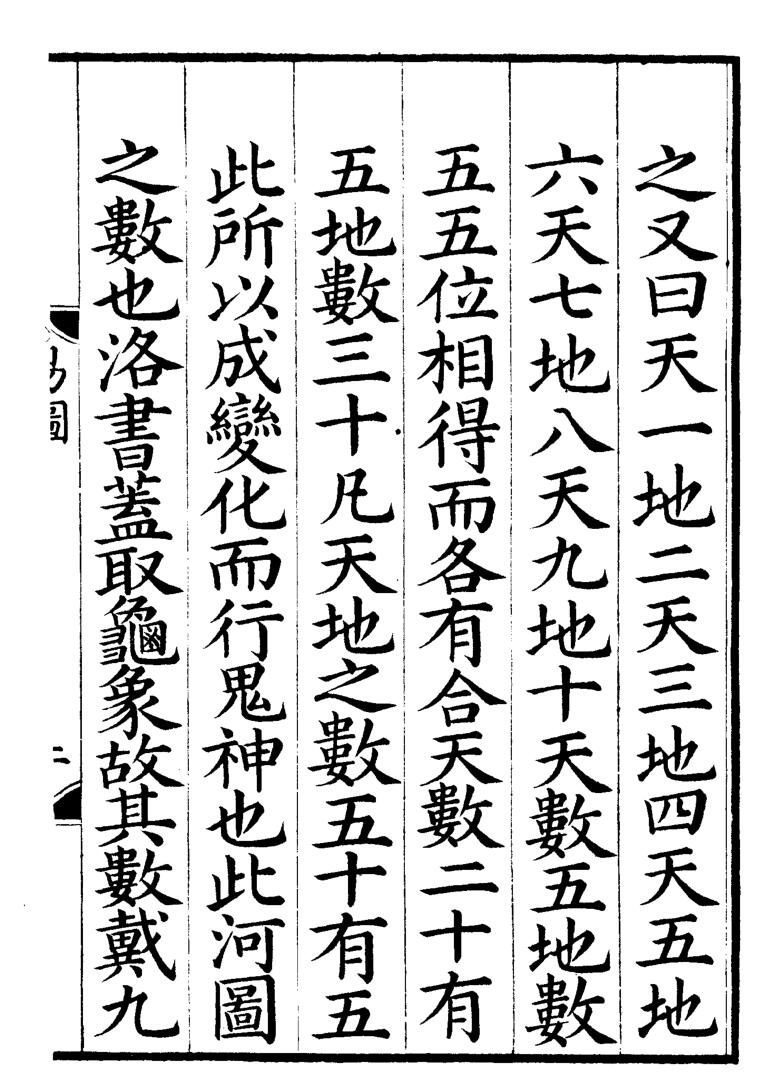 之又曰天一地二天三地四天五地
六天七地八天九地十天數五地數
五五位相得而各有合天數二十有
五地數三十凡天地之數五十有五
此所以成變化而行鬼神也此河圖
之數也洛書蓋取龜象故其數戴九
易圖
二